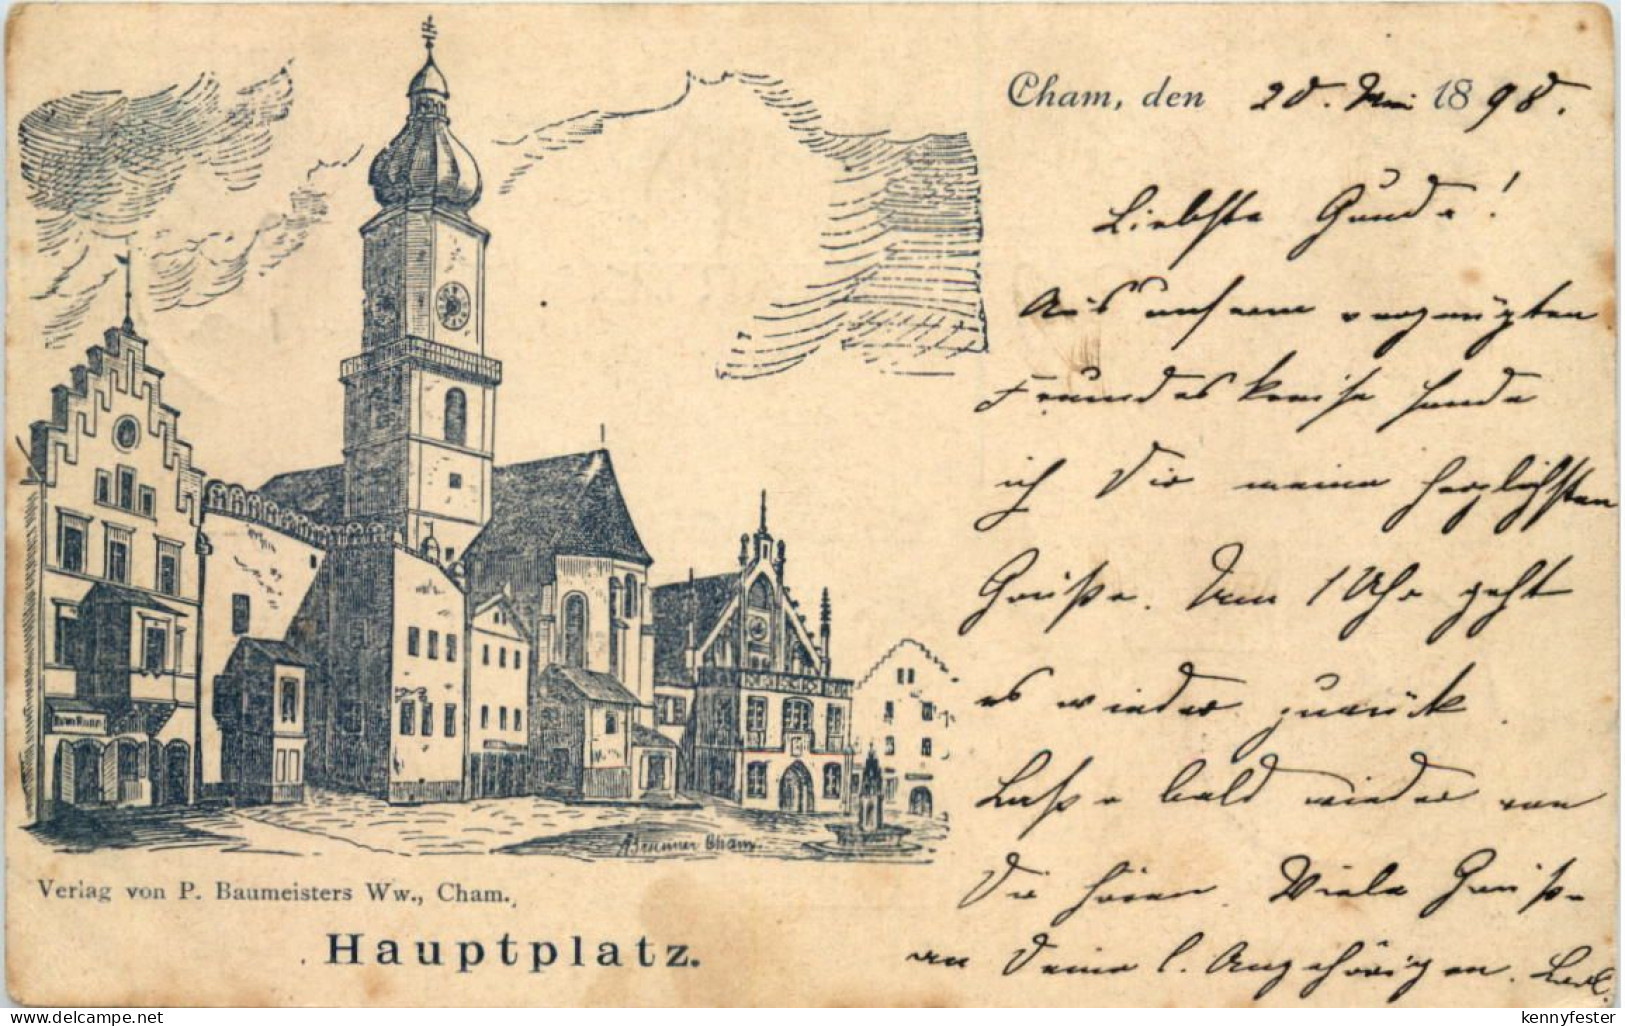 Cham, den 20. Mai 1898.
Liebste Gunda!
Aus unserm vergnügten
Freundeskreise sende
ich Dir meine herzlichsten
Grüße. Um 1 Uhr geht
es wieder zurück.
Lasse bald wieder von
Dir hören. Viele Grüße
an Deine l. Angehörigen.
ABrunner Cham.
Verlag von P. Baumeisters Ww., Cham.
Hauptplatz.
www.delcampe.net
kennyfester